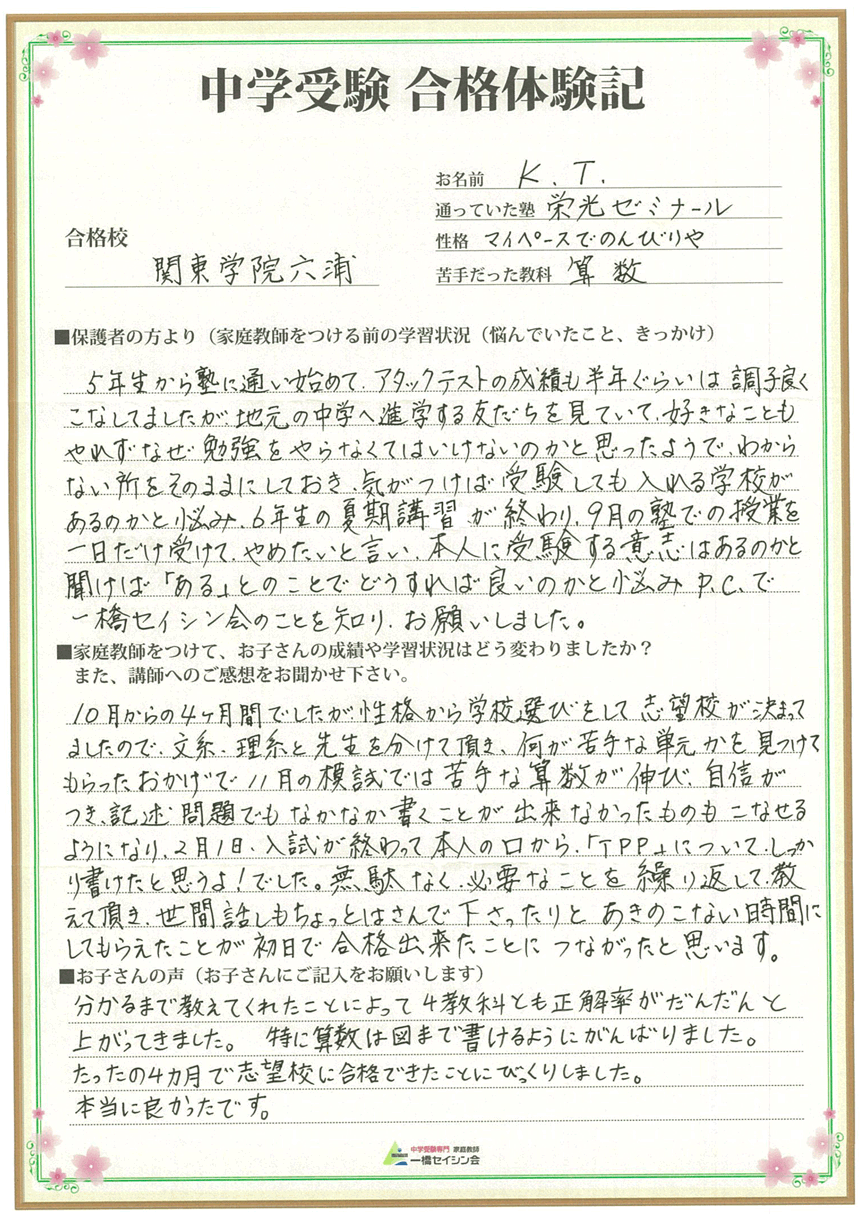 中学受験 合格体験記
お名前 K.T.
通っていた塾 栄光ゼミナール
性格 マイペースでのんびりや
苦手だった教科 算数
合格校
関東学院六浦
■保護者の方より（家庭教師をつける前の学習状況（悩んでいたこと、きっかけ）
5年生から塾に通い始めて、アタックテストの成績も半年ぐらいは調子良く
こなしてましたが、地元の中学へ進学する友だちを見ていて、好きなことも
やれずなぜ勉強をやらなくてはいけないのかと思ったようで、わから
ない所をそのままにしておき、気がつけば受験しても入れる学校が
あるのかと悩み、6年生の夏期講習が終わり、9月の塾での授業を
一日だけ受けて、やめたいと言い、本人に受験する意志はあるのかと
聞けば「ある」とのことでどうすれば良いのかと悩みP.C.で
一橋セイシン会のことを知り、お願いしました。
■家庭教師をつけて、お子さんの成績や学習状況はどう変わりましたか？
また、講師へのご感想をお聞かせ下さい。
10月からの4ヶ月間でしたが性格から学校選びをして志望校が決まって
ましたので、文系、理系と先生を分けて頂き、何が苦手な単元かを見つけて
もらったおかげで11月の模試では苦手な算数が伸び、自信が
つき、記述問題でもなかなか書くことが出来なかったものもこなせる
ようになり、2月1日、入試が終わって本人の口から、「TPP」について、しっか
り書けたと思うよ！でした。無駄なく、必要なことを繰り返して、教
えて頂き、世間話しもちょっとはさんで下さったりとあきのこない時間に
してもらえたことが初日で合格出来たことにつながったと思います。
■お子さんの声（お子さんにご記入をお願いします）
分かるまで教えてくれたことによって4教科とも正解率がだんだんと
上がってきました。 特に算数は図まで書けるようにがんばりました。
たったの4カ月で志望校に合格できたことにびっくりしました。
本当に良かったです。
中学受験専門 家庭教師
一橋セイシン会